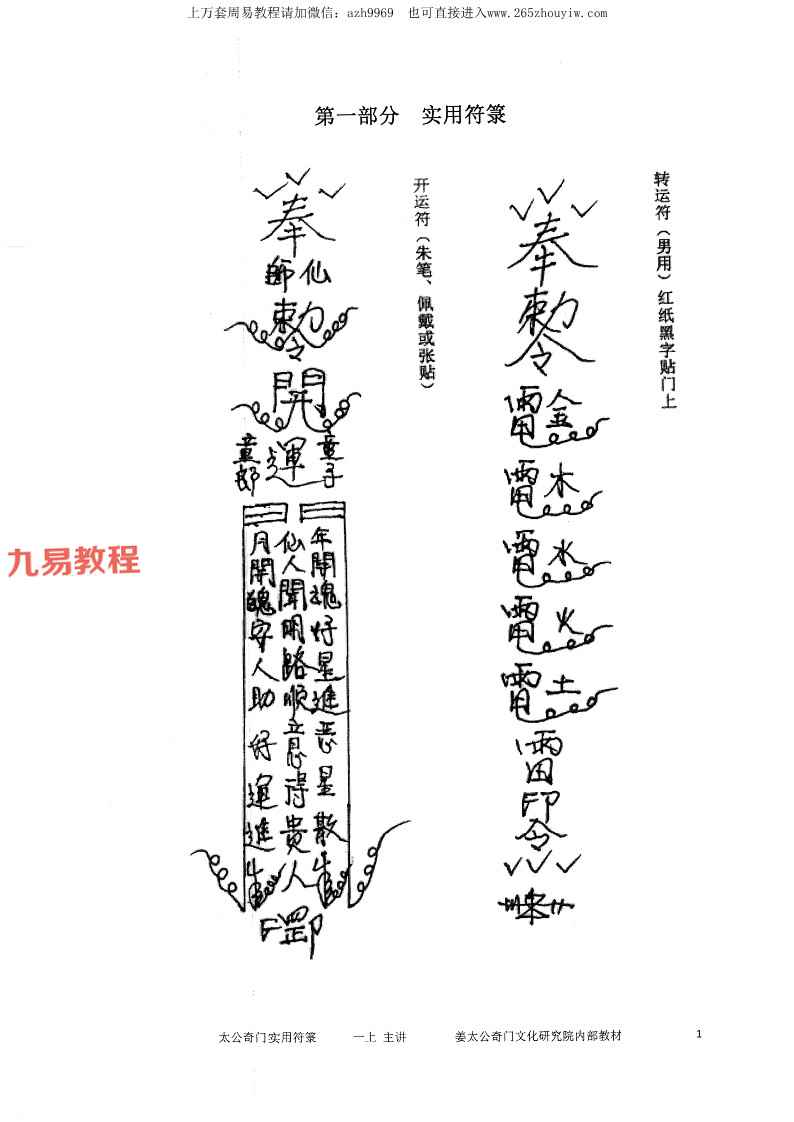 上万套周易教程请加微信：azh9969　也可直接进入www.265zhouyiw.com
第一部分　实用符箓
转运符（男用）红纸黑字贴门上
奉
勅
令
金
木
水
火
土
雷
印
令
开运符（朱笔、佩戴或张贴）
奉
仙師
勅
令
開
童子
運
童郎
年開魂好星進恶星散
仙人開明路順意得贵人
月開魄安人助好運進
罡印
九易教程
太公奇门实用符箓　一上 主讲　姜太公奇门文化研究院内部教材　1